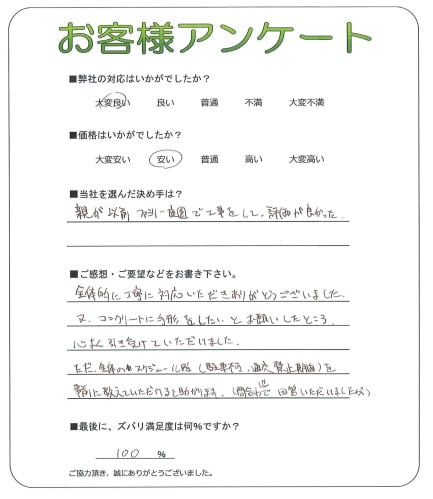 お客様アンケート
■弊社の対応はいかがでしたか？
大変良い 良い 普通 不満 大変不満
■価格はいかがでしたか？
大変安い 安い 普通 高い 大変高い
■当社を選んだ決め手は？
親が以前ファミリー庭園で工事をして、評価が良かった。
■ご感想・ご要望などをお書き下さい。
全体的に丁寧に対応いただきありがとうございました。
又、コンクリートに手形をしたいとお願いしたところ、
心よく引き受けていただけました。
ただ、全体のスケジュール(駐車不可、通交禁止期間)を
に教えていただけると助かります。(回答いただいましたが)
■最後に、ズバリ満足度は何％ですか？
100 ％
ご協力頂き、誠にありがとうございました。